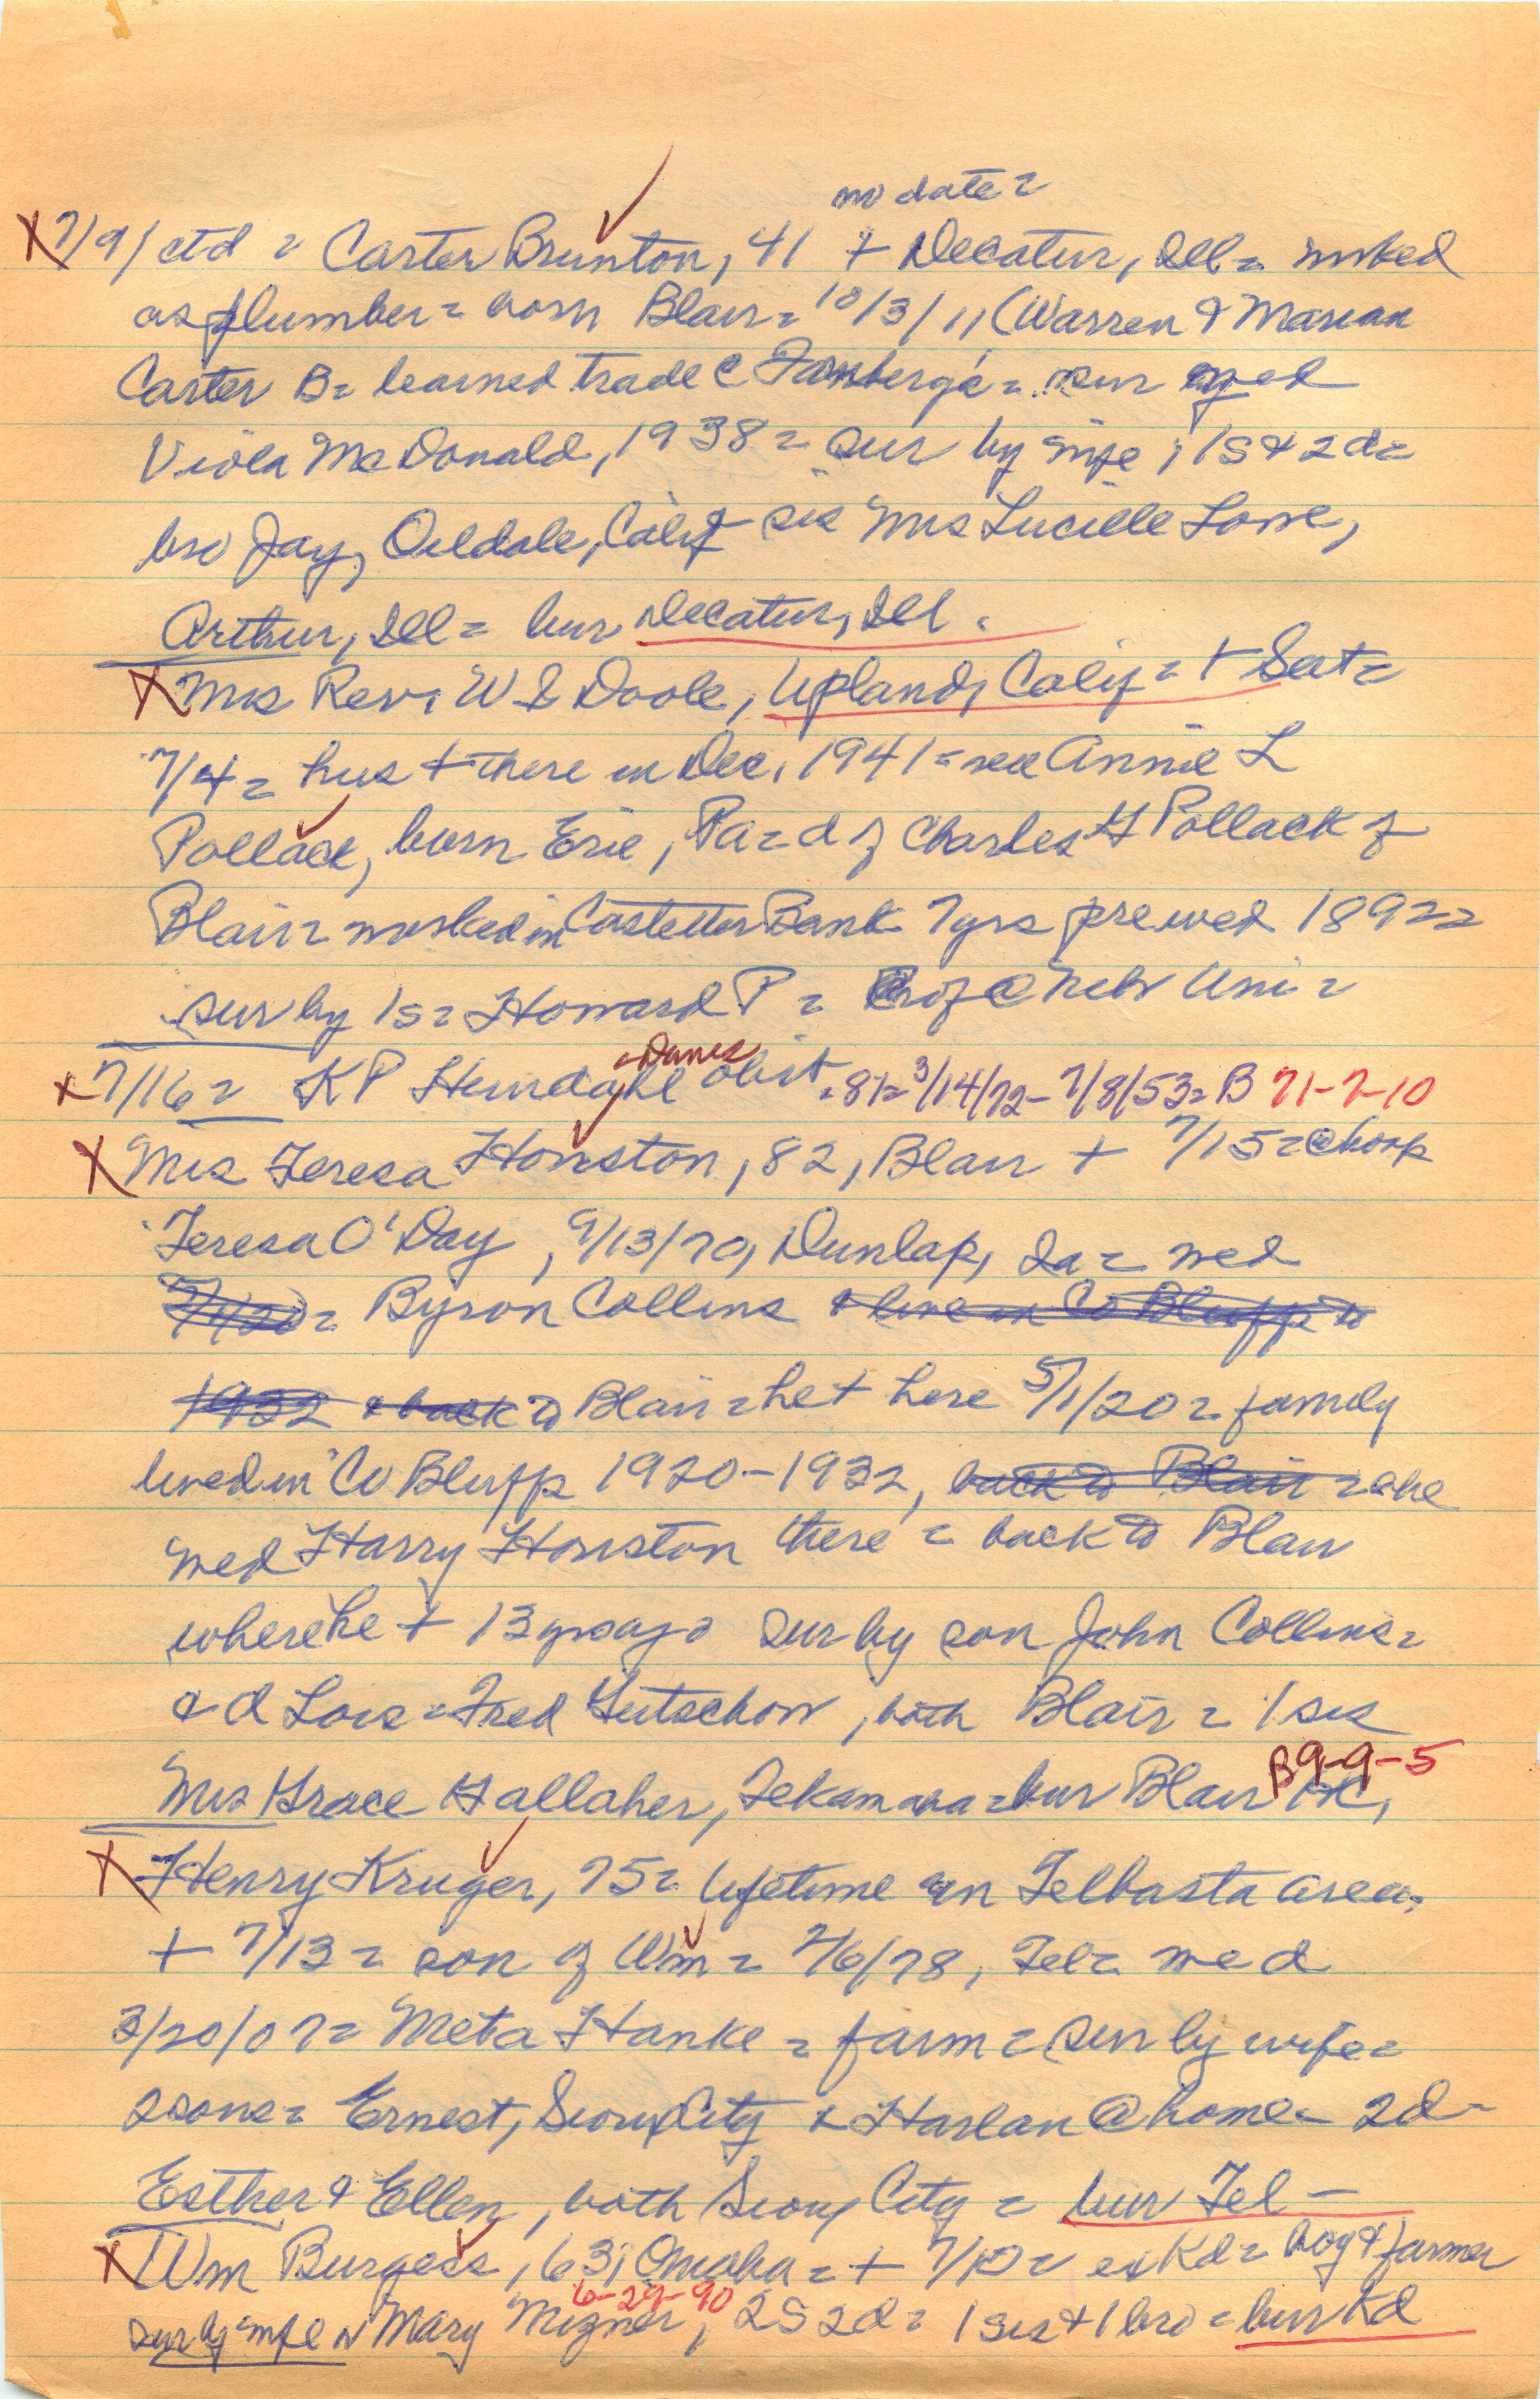 no date =
X 7/9/ctd = Carter Brunton, 41 + Decatur, Ill = worked
as plumber = born Blair = 10/3/11 (Warren & Marian
Carter B = learned trade @ = wed
Viola McDonald, 1938 = sur by wife, 1s & 2d =
bro Jay, Oildale, Calif sis Mrs Lucille Lowe,
Arthur, Ill = bur Decatur, Ill.
X Mrs Rev. W Doole, Upland, Calif = + Sat =
7/4 = hus + there in Dec, 1941 = nee Annie L
Pollack, born Erie, Pa = d of Charles H Pollack of
Blair = worked in Castetter Bank 7 yrs pre wed 1892 =
sur by 1s = Howard P = Prof @ Nebr Uni =
X 7/16 = K P Hemdahl = Danes obit = 81 = 3/14/72 - 7/8/53 = B 71-7-10
X Mrs Teresa Houston, 82, Blair + 7/15 = @ hosp
Teresa O'Day, 9/13/70, Dunlap, Ia = wed
5/1/20 = Byron Collins & live in Co Bluffs to
1932 & back to Blair = he + here 5/1/20 = family
lived in Co Bluffs 1920-1932, back to Blair = she
wed Harry Houston there = back to Blair
where he + 13 yrs ago sur by son John Collins =
& d Lois = Fred Gutschow, both Blair = 1 sis
Mrs Grace Gallaher, Tekamah = bur Blair B 9-9-5
X Henry Kruger, 75 = lifetime in Telbasta area,
+ 7/13 = son of Wm = 2/6/78, Tel = wed
3/20/07 = Meta Hanke = farm = sur by wife =
2 sons = Ernest, Sioux City & Harlan @ home - 2d -
Esther & Ellen, both Sioux City = bur Tel -
X Wm Burgess, 63, Omaha = + 7/10 = ex Kd = boy & farmer
6-29-90
sur by wife N Mary Mizner, 2s 2d = 1 sis + 1 bro = bur Kd